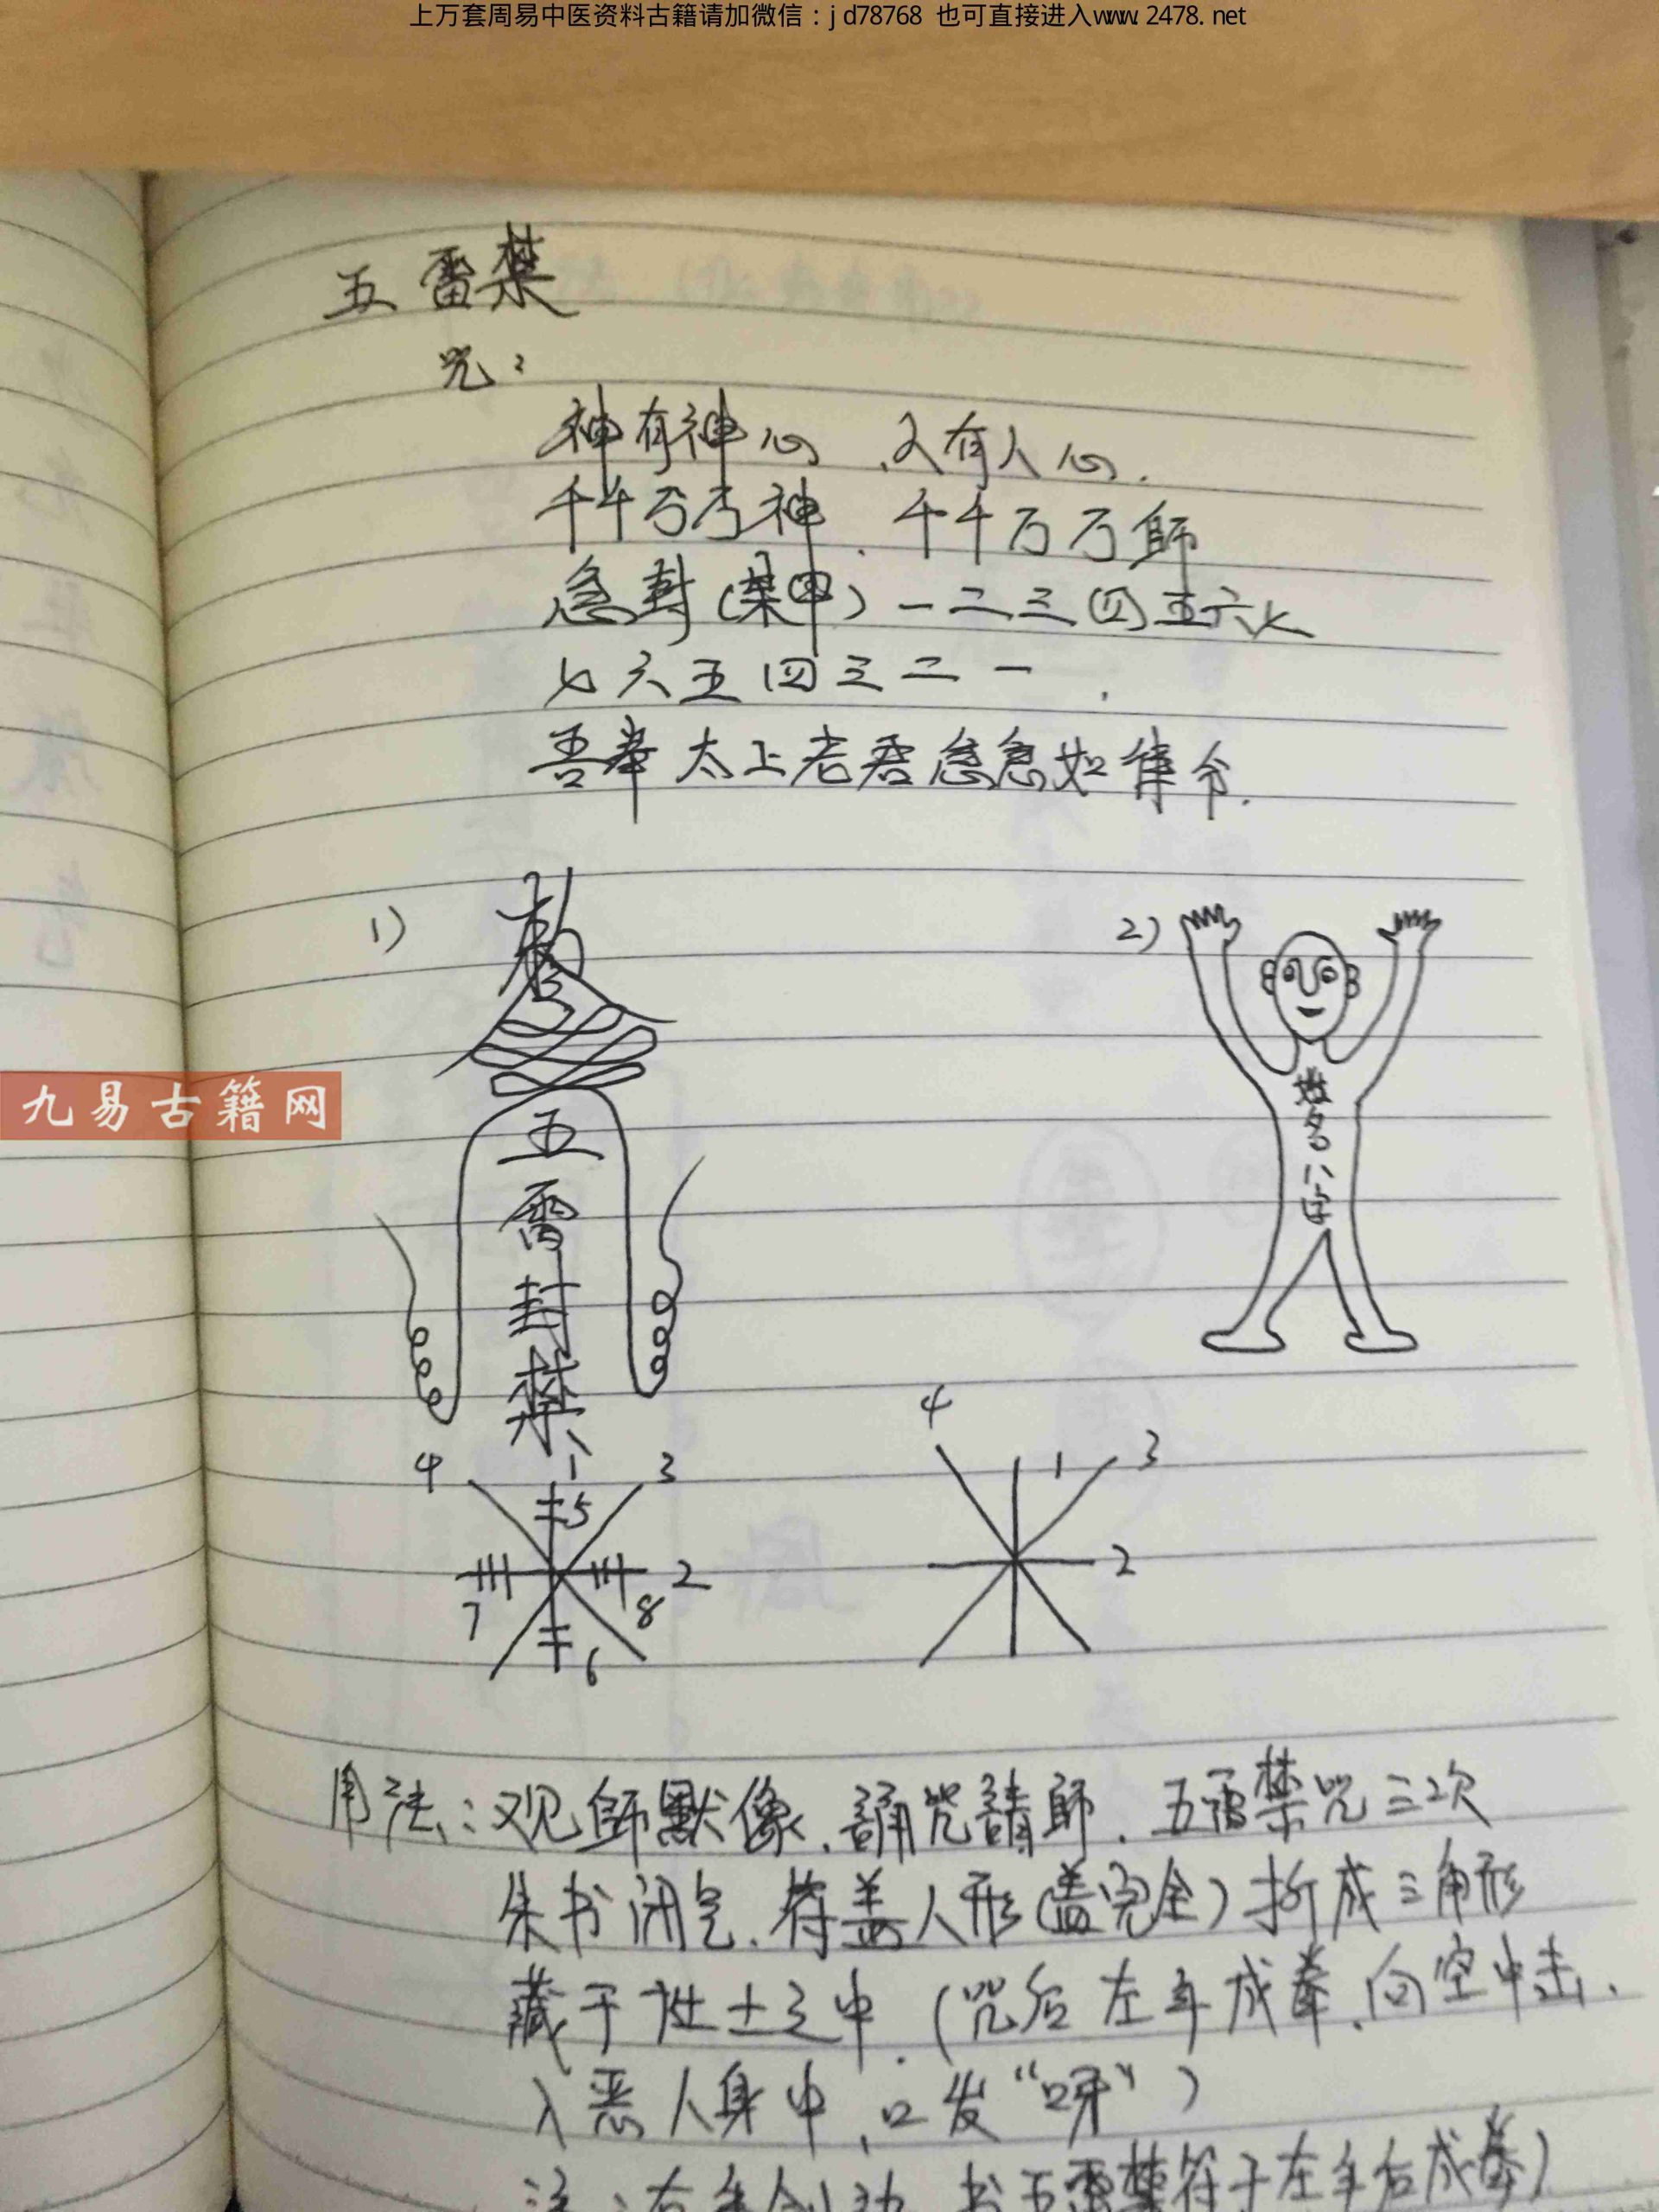 上万套周易中医资料古籍请加微信：jd78768 也可直接进入www.2478.net
五雷禁
咒：
神有神心、人有人心.
千千万万神、千千万万師
急封（某甲）一二三四五六七
七六五四三二一.
吾奉太上老君急急如律令.
1)
2)
五
雷
封
禁
姓
名
八
字
4 1 3
5
2
7 8
6
4
1 3
2
九易古籍网
用法：观師默像、誦咒請師.五雷禁咒三次
朱书闭气.符盖人形（盖完全）折成三角形
藏于灶土之中.（咒后左手成拳、向空中击、
入恶人身中、口发“呀”）
书五雷禁符于左手后成拳）